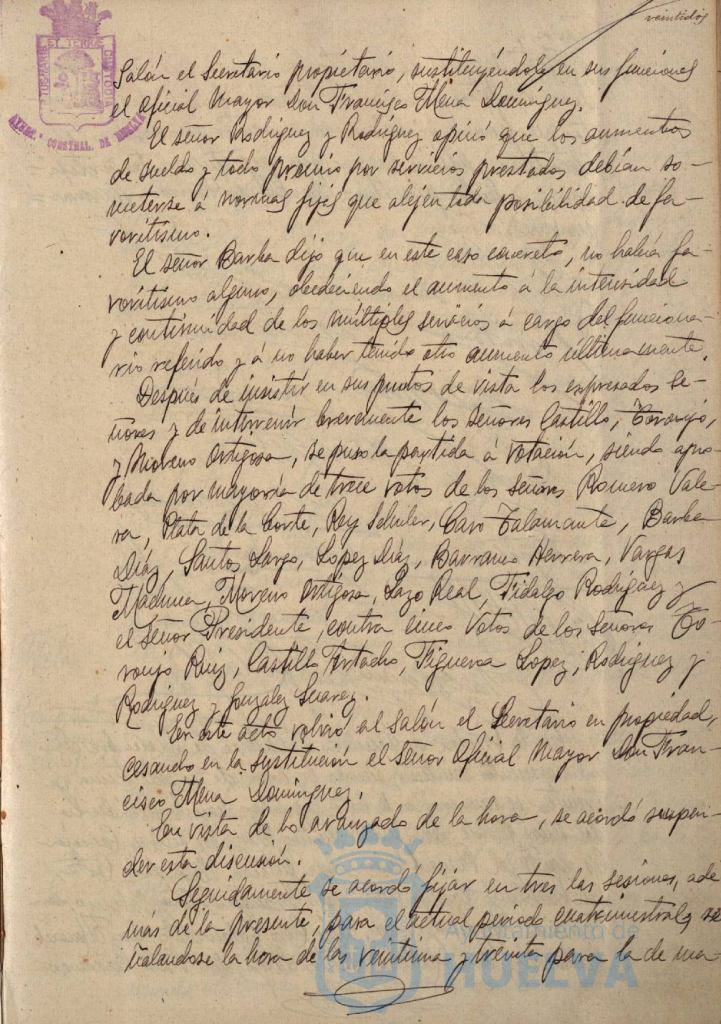 veintidós
Salón el Secretario propietario, sustituyéndole en sus funciones
el oficial Mayor Don Francisco Mena Domínguez.
El señor Rodríguez y Rodríguez opinó que los aumentos
de sueldo y todo premio por servicios prestados debían so-
meterse á normas fijas que alejen toda posibilidad de fa-
voritismo.
El señor Barba dijo que en este caso concreto, no había fa-
voritismo alguno, obedeciendo el aumento á la intensidad
y continuidad de los múltiples servicios á cargo del funciona-
rio referido y á no haber tenido otro aumento últimamente.
Después de insistir en sus puntos de vista los expresados Se-
ñores y de intervenir brevemente los señores Castillo, Toronjo,
y Moreno Ortigosa, se puso la partida á votación, siendo apro-
bada por mayoría de trece votos de los señores Romero Vale-
ra, Plata de la Corte, Rey Schuler, Caro Talamante, Barba
Díaz, Santos Largo, López Díaz, Barranco Herrera, Vargas
Machuca, Moreno Ortigosa, Lazo Real, Fidalgo Rodríguez y
el señor Presidente, contra cinco votos de los señores To-
ronjo Ruiz, Castillo, Figueroa López, Rodríguez y
Rodríguez y González Suarez.
En este acto volvió al salón el Secretario en propiedad,
cesando en la sustitución el señor Oficial Mayor Don Fran-
cisco Mena Domínguez.
En vista de lo avanzado de la hora, se acordó suspen-
der esta discusión.
Seguidamente se acordó fijar en tres las sesiones, ade
más de la presente, para el actual período cuatrimestral, se
ñalandose la hora de las veintiuna y treinta para la de ma-
Ayuntamiento de
HUELVA